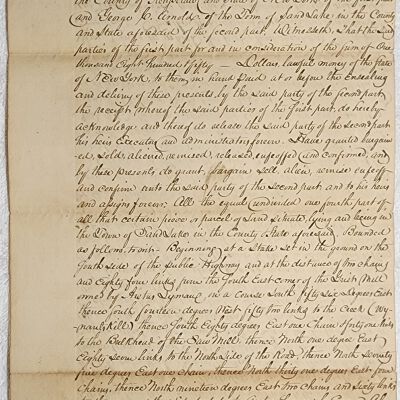 the County of Rensselaer and State of New York of the first part
and George C. Arnold of the Town of Sand Lake in the County
and State aforesaid of the second part, Witnesseth, That the said
parties of the first part for and in consideration of the sum of One
thousand Eight Hundred & fifty — Dollars, lawful money of the State
of New York, to them in hand paid at or before the Ensealing
and delivery of these presents by the said party of the second part
the receipt whereof the said parties of the first part, do hereby
acknowledge and thereof do release the said party of the second part
his heirs Executors and administrators forever. Have granted bargain
ed, sold, aliened, remised, released, enfeoffed and confirmed, and
by these presents do grant, bargain sell, alien, remise enfeoff
and confirm unto the said party of the second part, and to his heirs
and assigns forever; All the equal undivided one fourth part of
all that certain piece or parcel of Land situate, lying and being in
the Town of Sand Lake in the County & State aforesaid, Bounded
as follows. to wit - Beginning at a Stake set in the ground on the
South Side of the public Highway and at the distance of two chains
and Eighty four links from the South East corner of the Grist Mill
owned by Lyman, on a course South fifty six Degrees East
thence South fourteen degrees West fifty two links to the Creek (wy-
nants Kill) thence South Eighty degrees East one Chain & forty one links
to the Bulkhead of the Saw Mill, thence North one degree East
Eighty seven links to the North Side of the Road, thence North Seventy
five degrees East one chain, thence North thirty one degrees East four
Chains, thence North nineteen degrees East two Chains and Sixty links